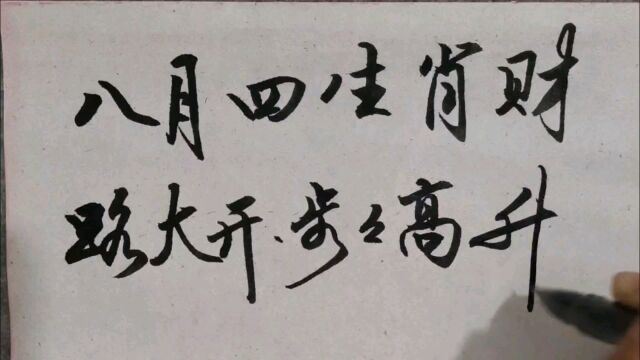 八月四生肖财
路大开、步々高升